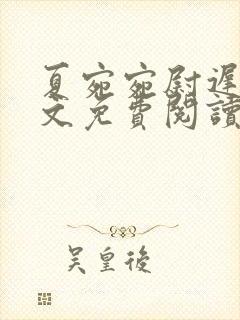 夏宛宛尉遲
文免費閱讀
吴皇後